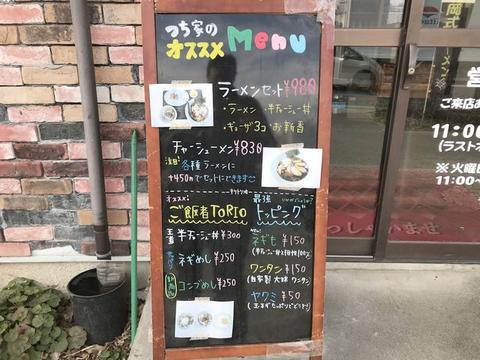 つち家の
オススメ Menu
ラーメンセット ¥980
・ラーメン ・半チャーシュー丼
・ギョーザ3コ・お新香
チャーシューメン ¥830
注目! 各種ラーメンに
+450円でセットにできます
オススメ!
ご飯者TORIO
半チャーシュー丼 ¥300
ネギめし ¥250
コンブめし ¥250
最強
トッピング
ネギも ¥150
ワンタン ¥150
(自家製 大林 ワンタン)
ヤクミ ¥50
営
ご来店お
11:00
(ラストオ
※火曜日
11:00~
っしゃいませ